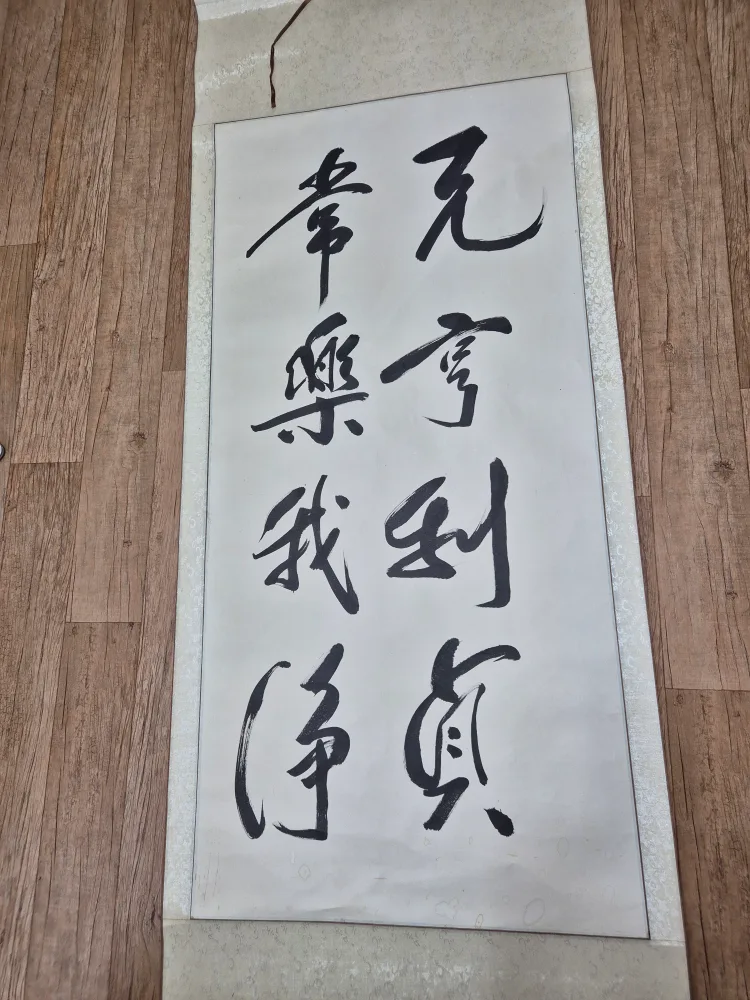 元亨利貞
常樂我淨